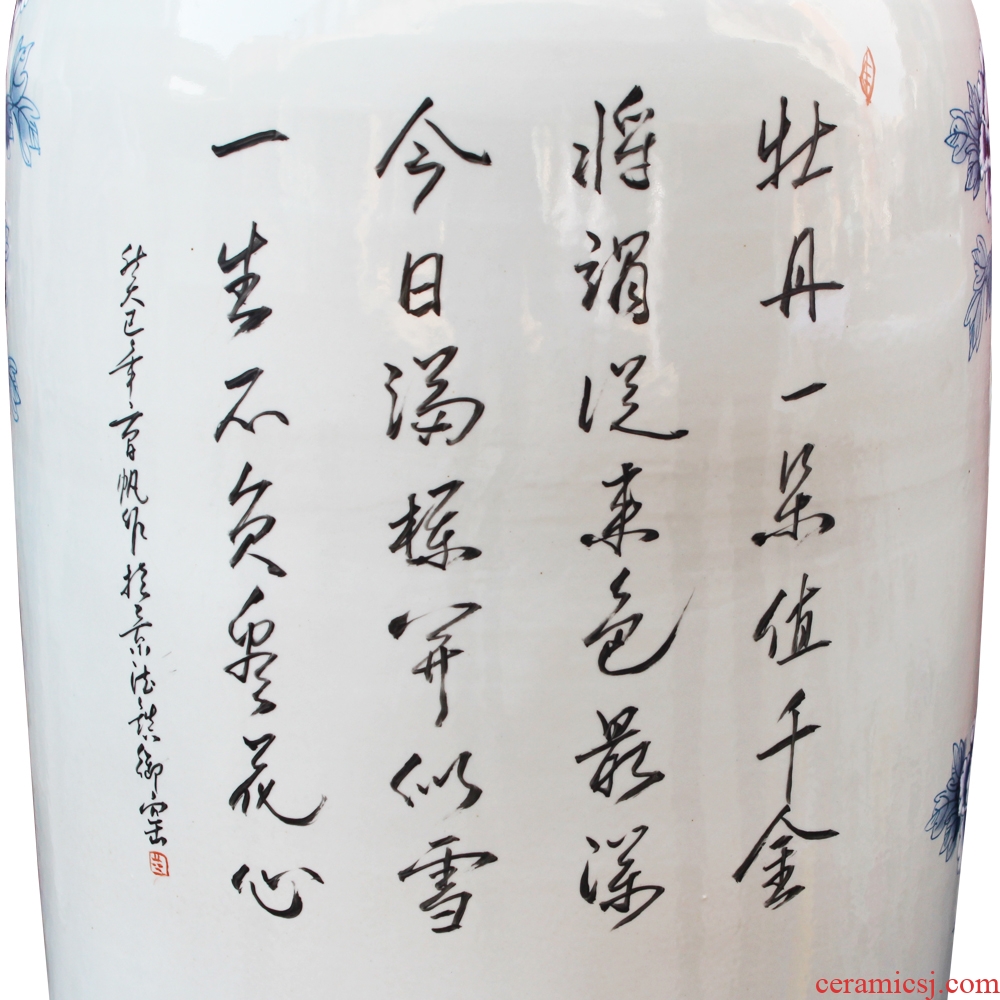 牡丹一朵值千金
将谓从来色最深
今日满栏开似雪
一生不负看花心
年 帆作於景德镇御窑
ceramicsj.com